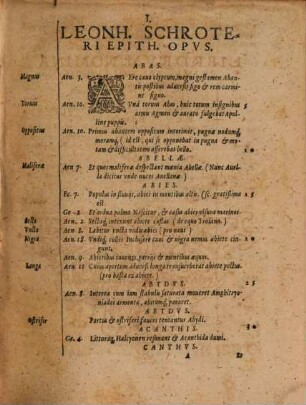 I.
LEONH. SCHROTE-
RI EPITH. OPVS.
ABAS.
Magnus Aen. 3. Aere cauo clypeum, magni gestamen Aban-
tis postibus aduersis figo & rem carmi-
ne signo.
Toruus Aen. 10. Vnà toruus Abas, huic totum insignibus 5
armis Agmen & aurato fulgebat Apol-
line puppis.
Oppositus Aen. 10. Primus abantem oppositum interimit, pugnæ nodumq́,
moramq́, (id est, qui se opponebat in pugna &
tam difficultatem afferebat hosti.
ABELLÆ.
Malifera Aen. 7. Et quos maliferæ despectant mœnia Abellæ. (Nunc Auel-
la dicitur vnde nuces Auellanæ)
ABIES.
Ec. 7. Populus in fluuijs, abies in montibus altis, (sc. gratissima
est.
Ge. 2. Et ardua palma Nascitur, & casus abies visura marinos.
Secta Aen. 2. Sectaq́ intexunt abiete costas (de equo Troiano.)
Vncta Aen. 8. Labitur vncta vadis abies (pro naui)
Nigra Aen. 8. Vndiq́, colles Inclusere caui & nigra nemus abiete cin-
gunt.
Aen. 9. Abietibus iuuenes patrijs & montibus æquos.
Longa Aen. 11. Cuius apertum aduersi longa transuerberat abiete pectus.
(pro hasta ex abiete.)
ABYDVS. 25
Aen. 8. Interea cum iam stabulis saturata moueret Amphitryo-
niades armenta, abitumq́, pararet.
ABYDVS.
Ostrifer Pontus & ostriferi fauces tentantur Abydi.
ACANTHIS.
Ge. 4. Littoraq́ Halcyonem resonant & Acanthida dumi.
A CANTHVS.